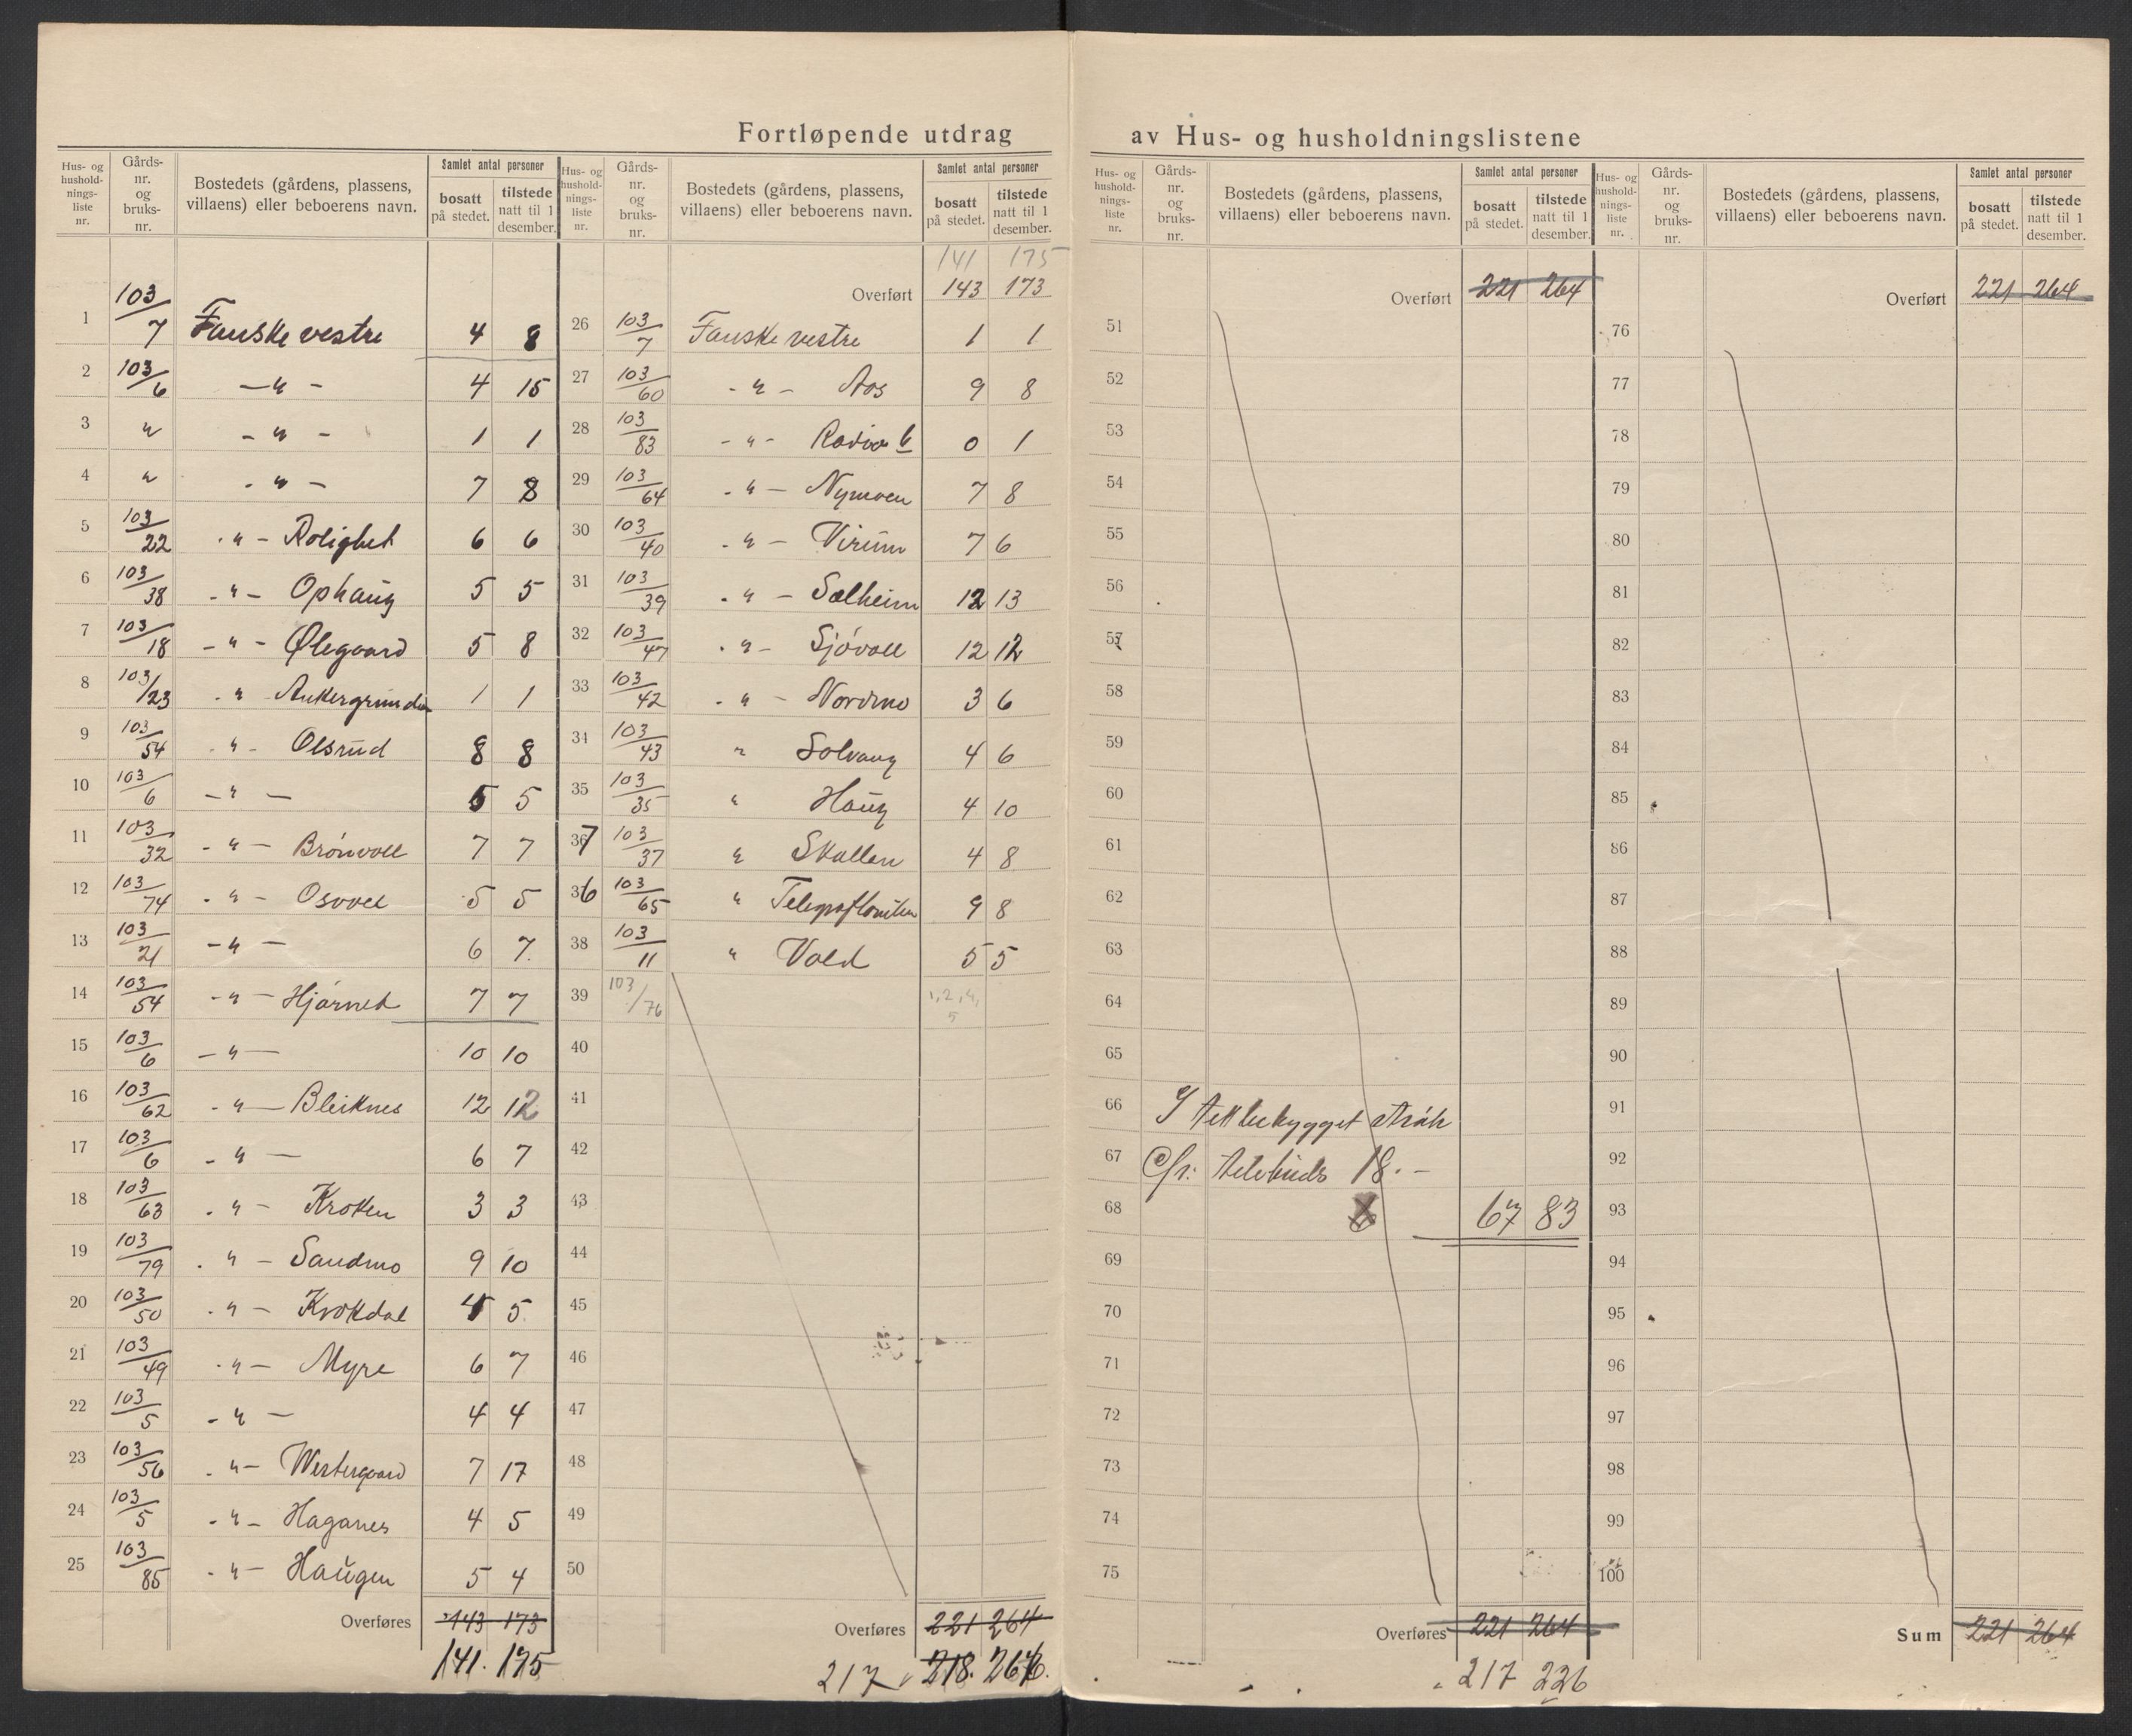 Fortløpende utdrag av Hus- og husholdningslistene
Hus- og hushold- nings- liste nr. | Gårds- nr. og bruks- nr. | Bostedets (gårdens, plassens, villaens) eller beboerens navn. | Samlet antal personer | bosatt på stedet. | tilstede natt til 1 desember.
1 103/7 Fauske vestre 4 8
2 103/6 —〃— 4 15
3 〃 —〃— 1 1
4 〃 —〃— 7 8
5 103/22 —〃— Rolighet 6 6
6 103/38 —〃— Ophaug 5 5
7 103/18 —〃— Ølegaard 5 8
8 103/23 〃 Ankergrunden 1 1
9 103/54 —〃— Olsrud 8 8
10 103/6 —〃— 5 5
11 103/32 —〃— Brønvoll 7 7
12 103/74 —〃— Osvoll 5 5
13 103/21 —〃— 6 7
14 103/54 —〃— Hjørnet 7 7
15 103/6 —〃— 10 10
16 103/62 —〃— Bleiknes 12 12
17 103/6 —〃— 6 7
18 103/63 —〃— Kroken 3 3
19 103/79 —〃— Sandmo 9 10
20 103/50 —〃— Krokdal 4 5
21 103/49 —〃— Myre 6 7
22 103/5 —〃— 4 4
23 103/56 —〃— Westergaard 7 17
24 103/5 —〃— Haganes 4 5
25 103/85 —〃— Haugen 5 4
Overføres 143 173
141. 175
Hus- og hushold- nings- liste nr. | Gårds- nr. og bruks- nr. | Bostedets (gårdens, plassens, villaens) eller beboerens navn. | Samlet antal personer | bosatt på stedet. | tilstede natt til 1 desember.
141 175
Overført 143 173
26 103/7 Fauske vestre 1 1
27 103/60 —〃— Aos 9 8
28 103/83 —〃— Radio 0 1
29 103/64 —〃— Nymoen 7 8
30 103/40 —〃— Virum 7 6
31 103/39 —〃— Solheim 12 13
32 103/47 —〃— Sjøvoll 12 12
33 103/42 —〃— Nordmo 3 6
34 103/43 〃 Solvang 4 6
35 103/35 〃 Haug 4 10
37 103/37 〃 Skallen 4 8
36 103/65 〃 9 8
38 103/11 〃 Vold 5 5
39 103/76 1, 2, 4, 5
40
41
42
43
44
45
46
47
48
49
50
Overføres 221 264
217 218. 266.
Hus- og hushold- nings- liste nr. | Gårds- nr. og bruks- nr. | Bostedets (gårdens, plassens, villaens) eller beboerens navn. | Samlet antal personer | bosatt på stedet. | tilstede natt til 1 desember.
Overført 221 264
51
52
53
54
55
56
57
58
59
60
61
62
63
64
65
66 I tettbebygget strøk
67 Cfr. 18.—
68 67 83
69
70
71
72
73
74
75
Overføres 221 264
217 226
Hus- og hushold- nings- liste nr. | Gårds- nr. og bruks- nr. | Bostedets (gårdens, plassens, villaens) eller beboerens navn. | Samlet antal personer | bosatt på stedet. | tilstede natt til 1 desember.
Overført 221 264
76
77
78
79
80
81
82
83
84
85
86
87
88
89
90
91
92
93
94
95
96
97
98
99
100
Sum 221 264